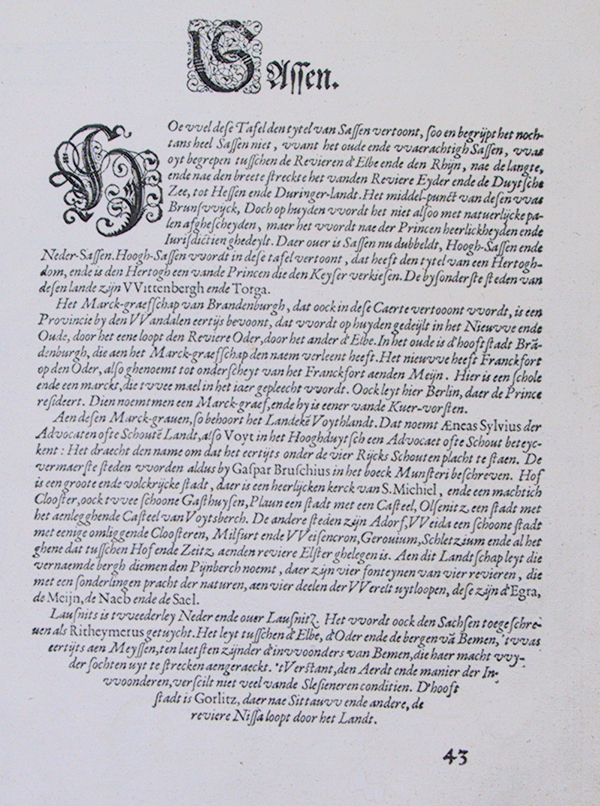 SAſſen.
HOe vvel deſe Tafel den tytel van Saſſen vertoont, ſoo en begrijpt het noch-
tans heel Saſſen niet, vvant het oude ende vvaerachtigh Saſſen, vvas
oyt begrepen tuſſchen de Revieren d'Elbe ende den Rhijn, nae de langte,
ende nae den breete ſtreckte het vanden Reviere Eyder ende de Duytſche
Zee, tot Heſſen ende Duringer-landt. Het middel-punct van deſen vvas
Brunſvvijck, Doch op huyden vvordt het niet alſoo met natuerlijcke pa-
len afgheſcheyden, maer het vvordt nae der Princen heerlickheyden ende
Iuriſdictien ghedeylt. Daer ouer is Saſſen nu dubbeldt, Hoogh-Saſſen ende
Neder-Saſſen. Hoogh-Saſſen vvordt in deſe tafel vertoont, dat heeft den tytel van een Hertogh-
dom, ende is den Hertogh een vande Princen die den Keyſer verkieſen. De byſonderſte ſteden van
deſen lande zijn VVittenbergh ende Totga.
Het Marck-graefſchap van Brandenburgh, dat oock in deſe Caerte vertooont vvordt, is een
Provincie by den VVandalen eertijs bevoont, dat vvordt op huyden gedeijlt in het Nieuvve ende
Oude, door het eene loopt den Reviere Oder, door het ander d'Elbe. In het oude is d'hooft ſtadt Brā-
denburgh, die aen het Marck-graefſchap den naem verleent heeft. Het nieuvve heeft Franckfort
op den Oder, alſo ghenoemt tot onderſcheyt van het Franckfort aenden Meijn. Hier is een ſchole
ende een marckt, die tvvee mael in het iaer gepleecht vvordt. Oock leyt hier Berlin, daer de Prince
reſideert. Dien noemtmen een Marck-graef, ende hy is eener vande Kuer-vorſten.
Aen deſen Marck-grauen, ſo behoort het Landekē Voythlandt. Dat noemt Æneas Sylvius der
Advocaten ofte Schoutē Landt, alſo Voyt in het Hooghduytſch een Advocaet ofte Schout beteyc-
kent: Het draecht den name om dat het eertijts onder de vier Rijcks Schouten placht te ſtaen. De
vermaerſte ſteden vvorden aldus by Gaſpar Bruſchius in het boeck Munſteri beſchreven. Hof
is een groote ende volckrijcke ſtadt, daer is een heerlijcken kerck van S. Michiel, ende een machtich
Clooſter, oock tvvee ſchoone Gaſthuyſen, Plaun een ſtadt met een Caſteel, Olſenitz een ſtadt met
het aenlegghende Caſteel van Voytsberch. De andere ſteden zijn Adorf, VVeida een ſchoone ſtadt
met eenige omliggende Clooſteren, Milfurt ende VVeiſencron, Gerouium, Schletzium ende al het
ghene dat tuſſchen Hof ende Zeitz, aenden reviere Elſter ghelegen is. Aen dit Landtſchap leyt die
vernaemde bergh diemen den Pijnberch noemt, daer zijn vier fonteynen van vier revieren, die
met een ſonderlingen pracht der naturen, aen vier deelen der VVerelt uytloopen, deſe zijn d'Egra,
de Meijn, de Naeb ende de Sael.
Lauſnits is tvveederley Neder ende ouer Lauſnitz. Het vvordt oock den Sachſen toegeſchre-
uen als Ritheymerus getuycht. Het leyt tuſſchen d'Elbe, d'Oder ende de bergen vā Bemen, 'tvvas
eertijts aen Meyſſen, ten laetſten zijnder d'invvoonders van Bemen, die haer macht vvy-
der ſochten uyt te ſtrecken aengeraeckt. 'tVerſtant, den Aerdt ende manier der In-
vvoonderen, verſcilt niet veel vande Sleſieneren conditien. D'hooft
ſtadt is Gorlitz, daer nae Sittauvv ende andere, de
reviere Niſſa loopt door het Landt.
43